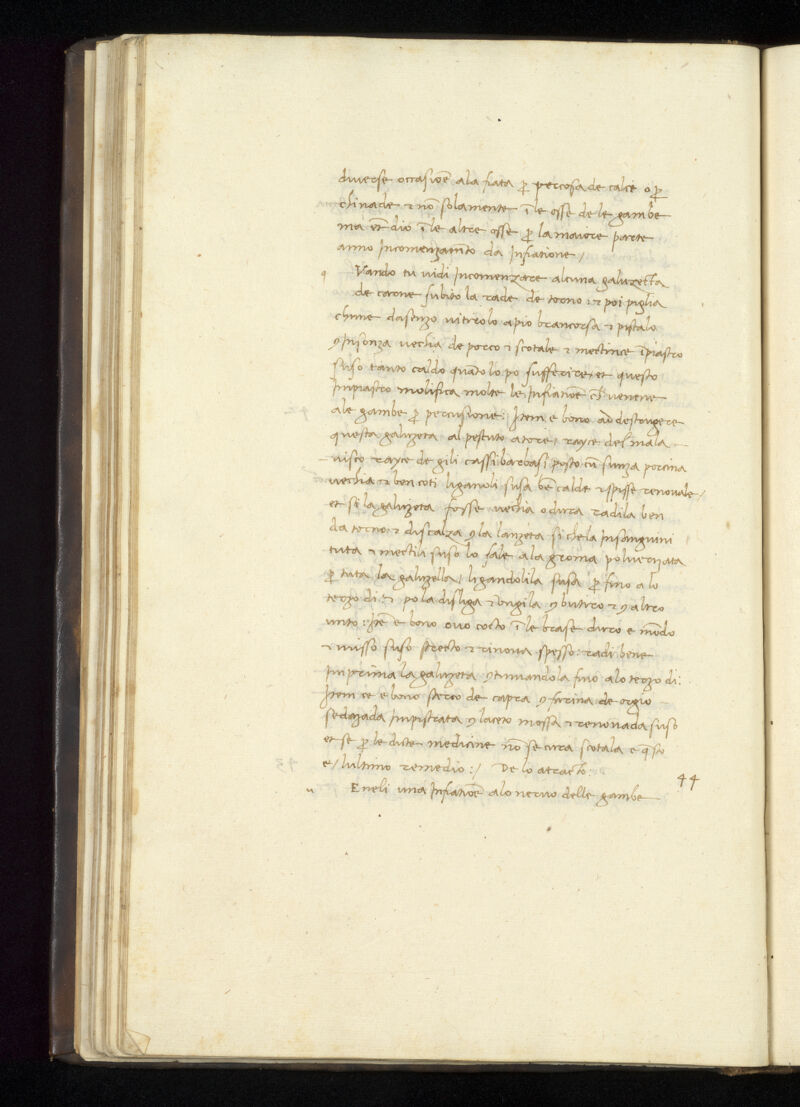 diverse occasiōe ala fiata p̄ percosa de calce o p̄
chinade ⁊ nō solamente ī le osse de le gambe
ma et̄dio ī le altre osse p̄ la maiore parte
anno Incomenzamto da Infiatione /
q Vando tu vidi Incomenzare alcuna galuzetta
de carne subito la rade de torno : ⁊ poi piglia
chime dasenzo vitriolo apio brancorsa ⁊ pistalo
ꝯ Insonza vechia de porco ⁊ scotale ⁊ mectince īpiastro
suso tanto caldo quāto lo po sufferire, et questo
Impiastro molifica molte le Infiatiōe ch̄ venene
ale gambe p̄ percusione : Item e bono ad destrugere
questa galuzeta al pestuto atorē, rayce del mala
visco rayce de gili tassi barbasi posto cū sunza porcina
vechia ⁊ ben coti liganoli susa bē calde ⁊ spisse renouale /
et se la galuzeta fosse vechia o dura radila ben
da torno : ⁊ discalza ꝯ la lanzeta si che la Insanguini
tuta ⁊ mectili suso lo sale ala groma poluerizata
p̄ tuta la galuzella / ligandolila susa p̄ fino a lo
terzo di : ⁊ po la disliga ⁊ ūngila ꝯ butiro ⁊ ꝯ altro
unto : Itē e bono ouo cocto ī le brase duro e mōdo
⁊ misso suso strecto ⁊ rinoua spesso : radi bene
Imprima la galuzeta ꝯtinuandola fino alo terzo di :
Item ce e bono sterco de capra ꝯ farina de orgio
sedazada Impistrata ꝯ laceto mossa ⁊ renouada suso
et se p̄ le dicte medicine nō se cura scotala e q̄sto
e / lultimo remedio : / De lo atracto :
44
u E neli una Infiatiōe alo neruo delle gambe